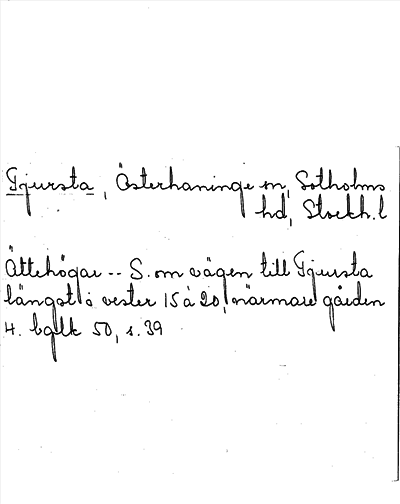 Tjursta, Österhaninge sn, Sotholms
hd, Stockh. l
Ättehögar -- S. om vägen till Tjursta
längst å vester 15 à 20, närmare gården
4. bqlk 50, s. 39